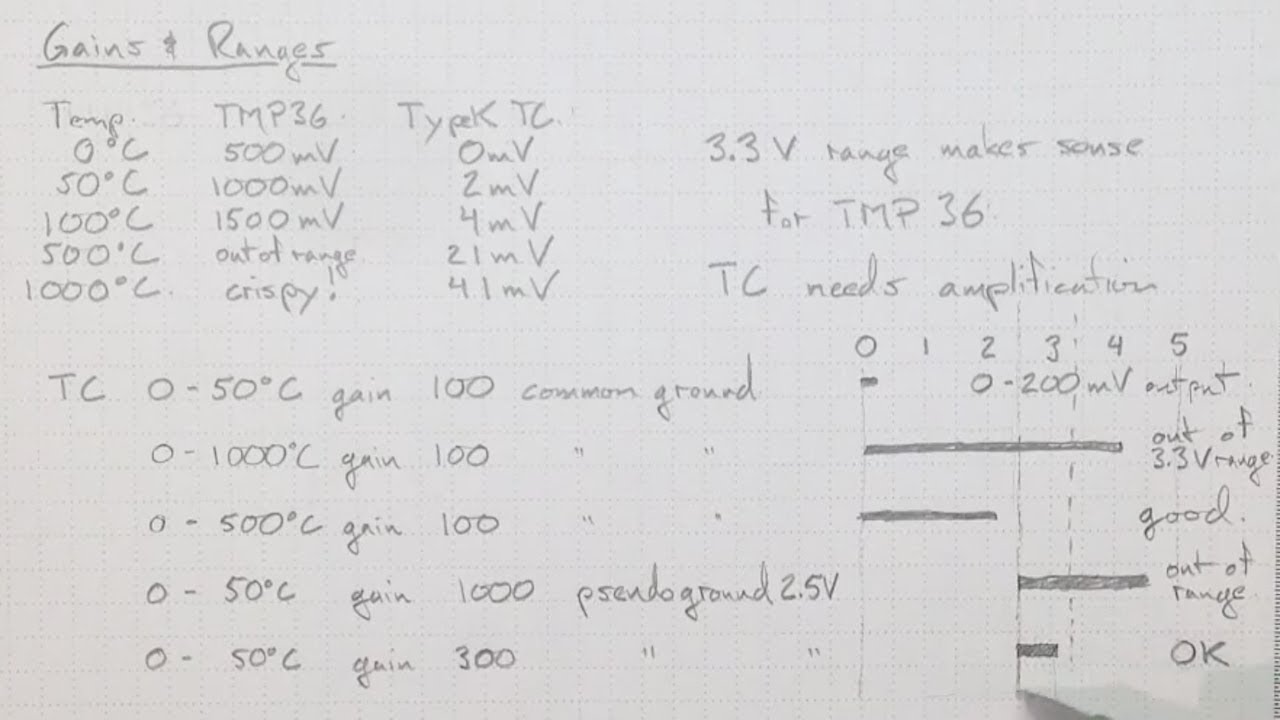 Gains & Ranges
Temp. TMP36 Type K TC.
0°C 500mV 0mV
50°C 1000mV 2mV
100°C 1500mV 4mV
500°C out of range 21mV
1000°C. crispy! 41mV
3.3 V range makes sense
for TMP 36.
TC needs amplification
0 1 2 3 4 5
TC 0-50°C gain 100 common ground 0-200mV output.
0-1000°C gain 100 " " out of
3.3V range
0-500°C gain 100 " " good.
0-50°C gain 1000 pseudoground 2.5V out of
range
0-50°C gain 300 " " OK